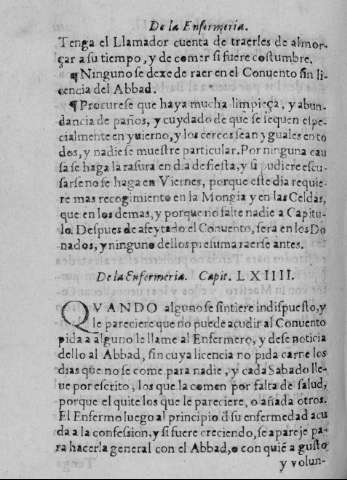 De la Enfermeria.
Tenga el Llamador cuenta de traerles de almor-
çar a su tiempo, y de comer si fuere costumbre.
¶ Ninguno se dexe de raer en el Conuento sin li-
cencia del Abbad.
¶ Procurese que haya mucha limpieça, y abun-
dancia de paños, y cuydado de que se sequen espe-
cialmente en yuierno, y los cercos sean yguales en to
dos, y nadie se muestre particular. Por ninguna cau
sa se haga la rasura en dia de fiesta, y si pudiere escu-
sarse no se haga en Viernes, porque este dia requie-
re mas recogimiento en la Mongia y en las Celdas,
que en los demas, y porque no falte nadie a Capitu-
lo. Despues de afeytado el Conuento, sera en los Do
nados, y ninguno dellos presuma raerse antes.
De la Enfermeria. Capit. LXIIII.
QVANDO alguno se sintiere indispuesto, y
le pareciere que no puede acudir al Conuento
pida a alguno le llame al Enfermero, y de se noticia
dello al Abbad, sin cuya licencia no pida carne los
dias que no se come para nadie, y cada Sabado lle-
ue por escrito, los que la comen por falta de salud,
porque el quite los que le pareciere, o añada otros.
El Enfermo luego al principio d su enfermedad acu
da a la confession, y si fuere creciendo, se apareje pa-
ra hazerla general con el Abbad, o con quiē a gusto
y volun-